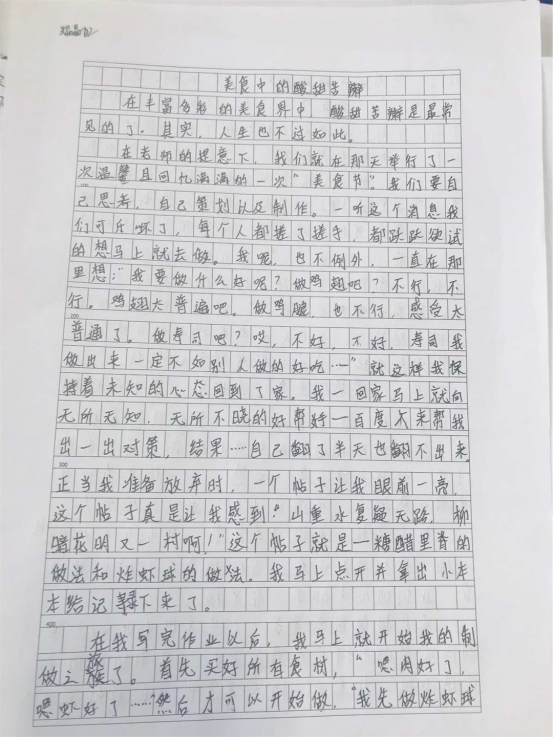 美食中的酸甜苦辣
在丰富多彩的美食界中，酸甜苦辣是最常
见的了。其实，人生也不过如此。
在老师的提意下，我们就在那天举行了一
次温馨且回忆满满的一次“美食节”。我们要自
己思考，自己策划以及制作。一听这个消息我
们可乐坏了，每个人都搓了搓手，都跃跃欲试
的想马上就去做。我呢，也不例外，一直在那
里想：“我要做什么好呢？做鸡翅吧？不行，不
行。鸡翅太普遍吧。做鸭腿，也不行，感受太
200
普通了。做寿司吧？哎，不好，不好，寿司我
做出来一定不如别人做的好吃……”就这样我保
持着未知的心态回到了家。我一回家马上就向
无所无知，无所不晓的好帮手一百度、来帮我
出一出对策，结果……自己翻了半天也翻不出来，
300
正当我准备放弃时，一个帖子让我眼前一亮，
这个帖子真是让我感到“山重水复疑无路，柳
暗花明又一村啊！”这个帖子就是一糖醋里脊的
做法和炸虾球的做法。我马上点开并拿出小本
本给记录下来了。
400
在我写完作业以后，我马上就开始我的制
做之旅了。首先买好所有食材，“嗯肉好了，
嗯虾好了……”然后才可以开始做，“我先做炸虾球